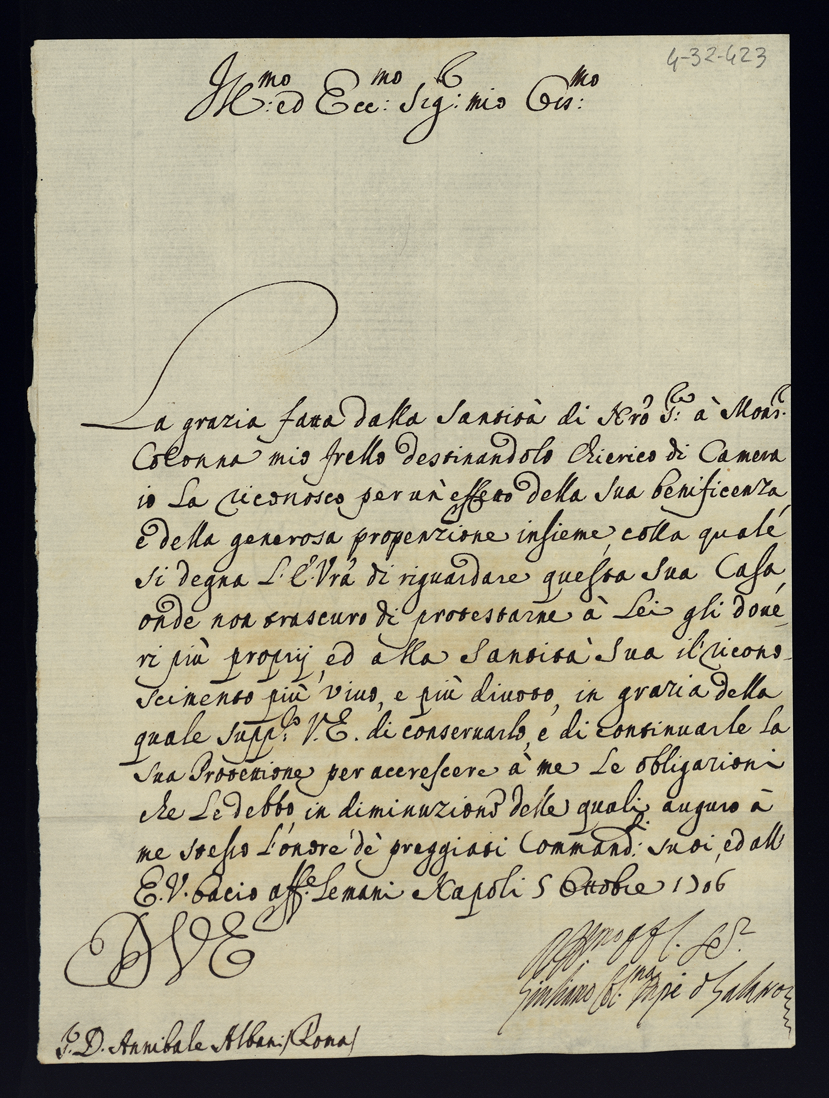 4-32-423
Ill:mo ed Ecc:mo Sig:r mio Oss:mo
La grazia fatta dalla Santità di Nro Sig:re à Mons:r
Colonna mio frello destinandolo Chierico di Camera
io la riconosco per un' effetto della sua benificenza,
e della generosa propenzione insieme, colla quale
si degna L'E. Vrà di riguardare questa sua Casa,
onde non trascuro di protestarne à Lei gli dove-
ri più proprij, ed alla Santità Sua il ricono-
scimento più vivo, e più divoto, in grazia della
quale supp:co V.E. di conservarlo, e di continuarle la
sua Protettione per accrescere à me le obligazioni
che Le debbo, in diminuzione delle quali auguro à
me stesso l'onore dè preggiati Command: suoi, ed all'
E.V. bacio aff:te le mani Napoli 5 Ottobre 1706
D V E
S. D. Annibale Albani (Roma)
Giuliano Col:na Npe d Galatro